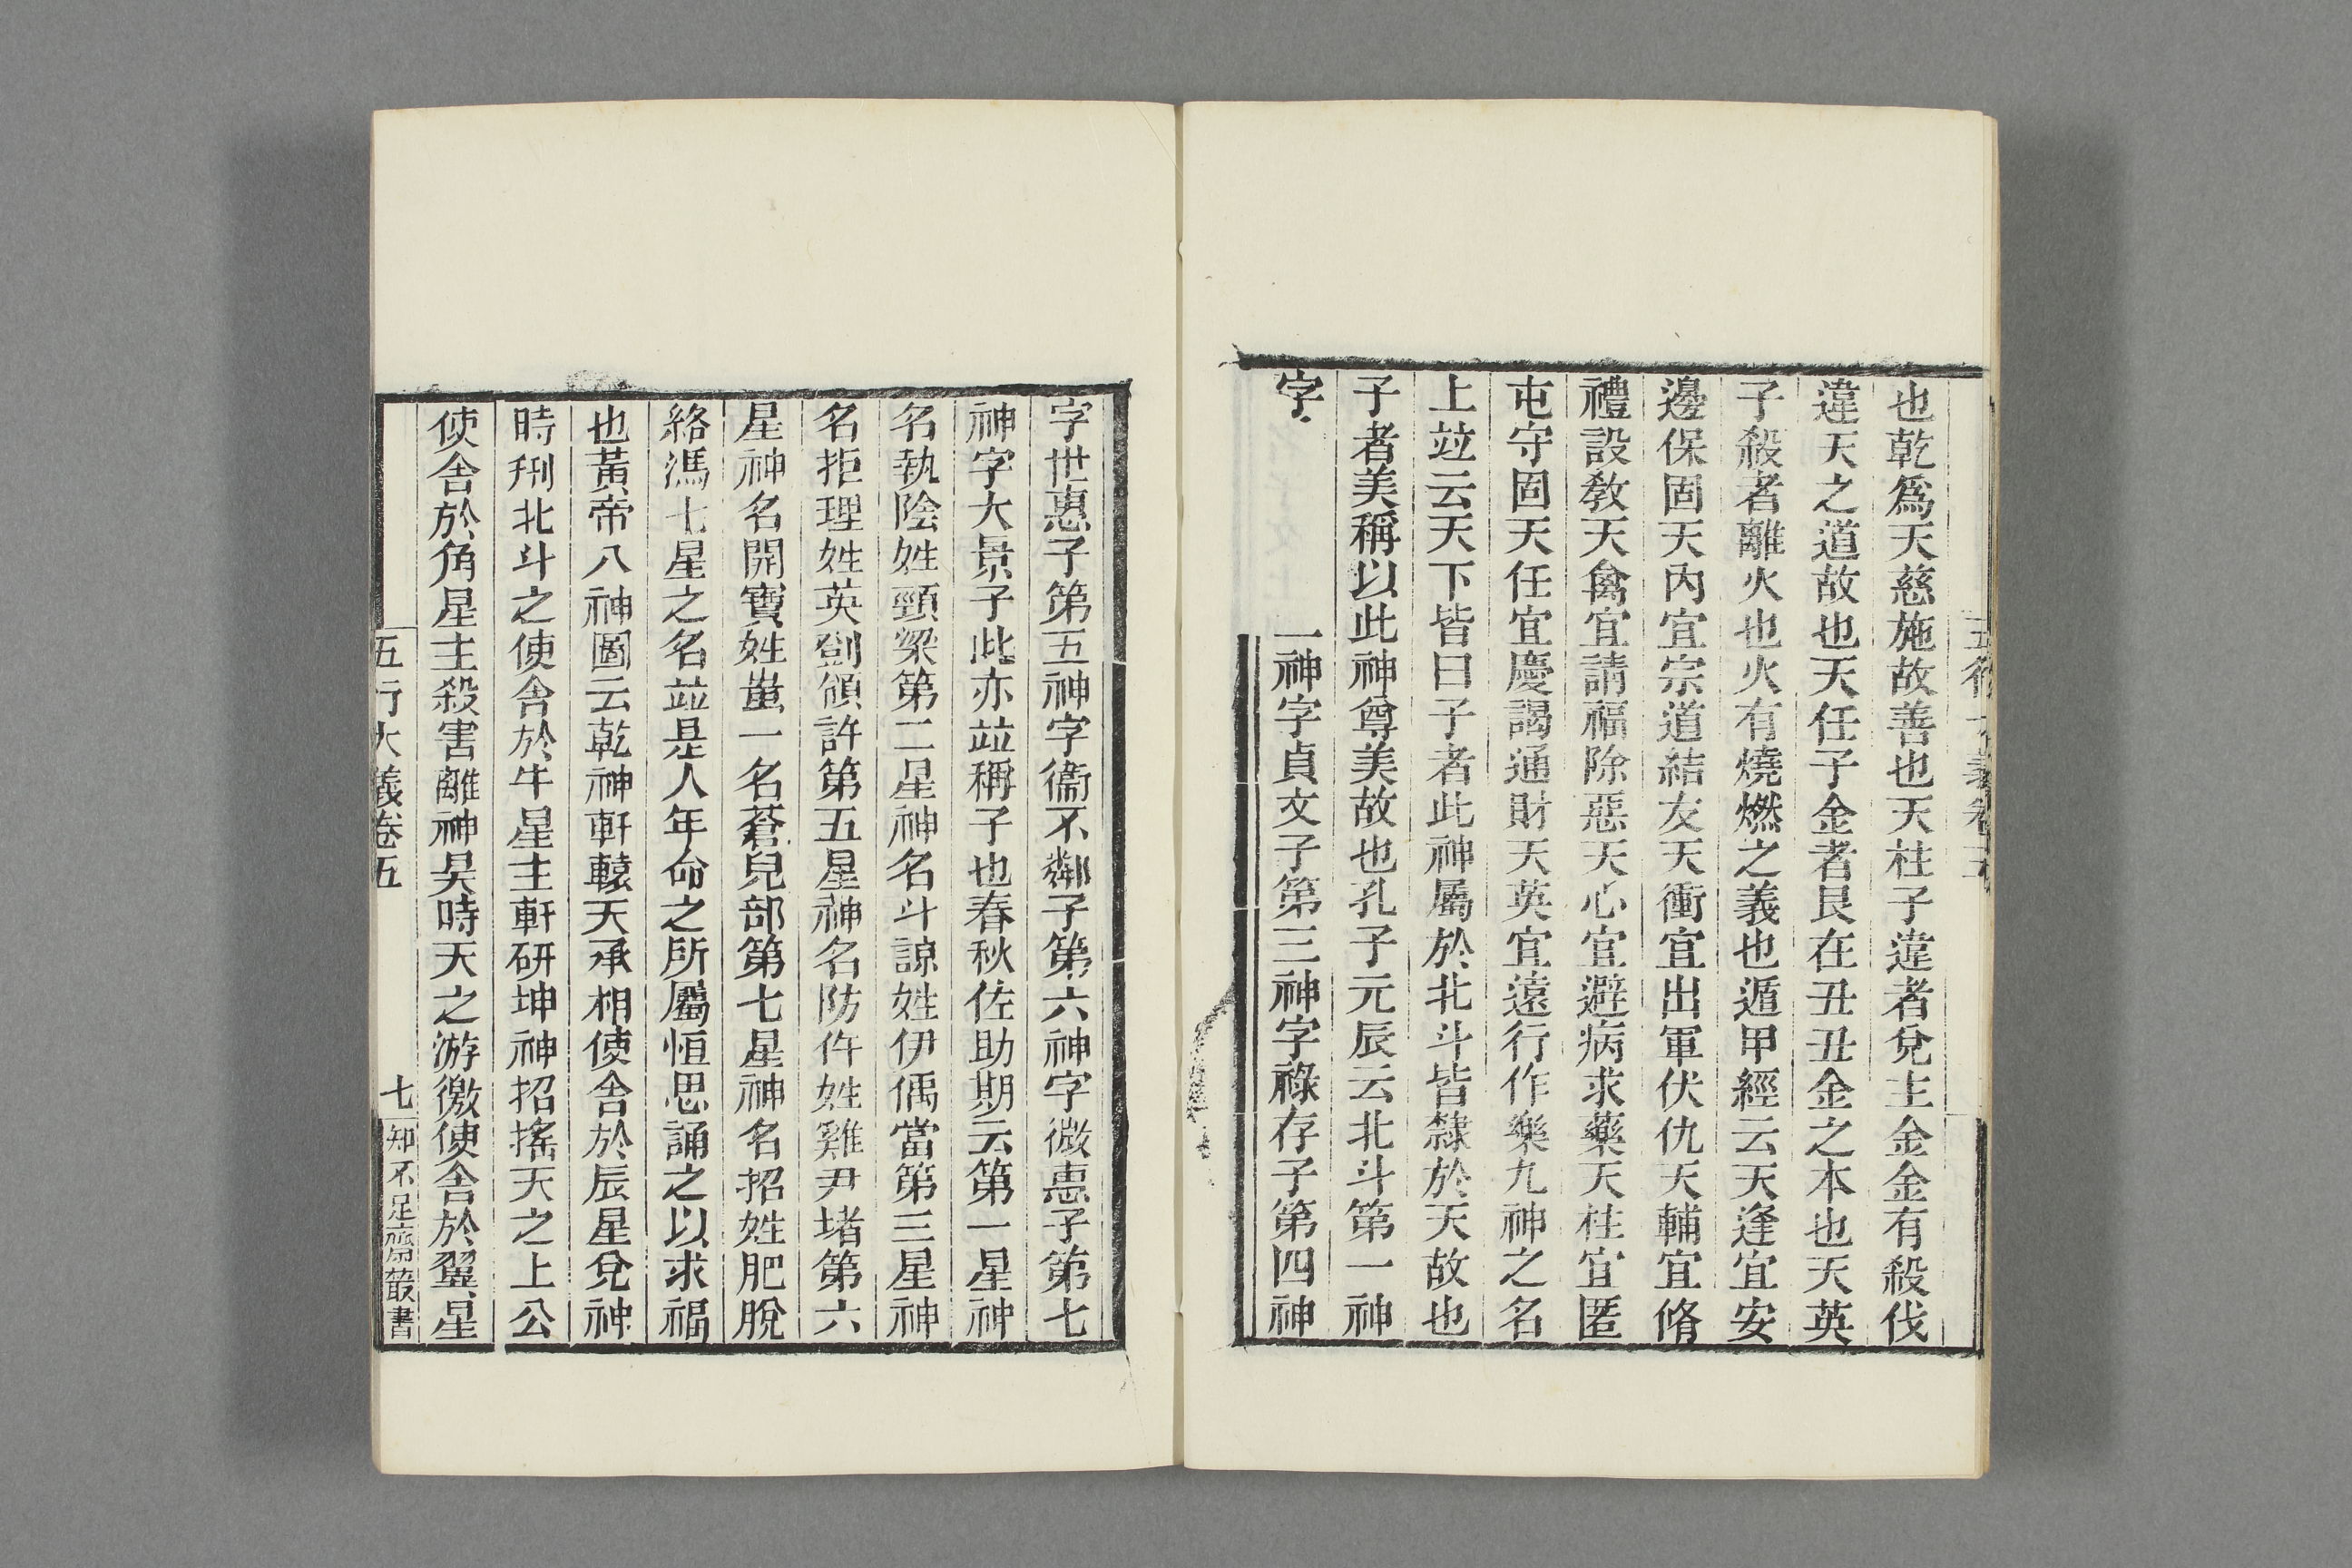 也乾爲天慈施故善也天柱子違者兌主金金有殺伐
違天之道故也天任子金者艮在丑丑金之本也天英
子殺者離火也火有燒燃之義也遁甲經云天逢宜安
邊保固天內宜宗道結友天衝宜出軍伏仇天輔宜脩
禮設敎天禽宜請福除惡天心宜避病求藥天柱宜匿
屯守固天任宜慶謁通財天英宜遠行作樂九神之名
上竝云天下皆曰子者此神屬於北斗皆隸於天故也
子者美稱以此神尊美故也孔子元辰云北斗第一神
字 一神字貞文子第三神字祿存子第四神
字世惠子第五神字衞不鄰子第六神字微惠子第七
神字大景子此亦竝稱子也春秋佐助期云第一星神
名執陰姓頸梁第二星神名斗諒姓伊偊當第三星神
名拒理姓英劉頒許第五星神名防仵姓雞尹堵第六
星神名開寶姓蚩一名蒼兒部第七星神名招姓肥脫
絡馮七星之名竝是人年命之所屬恒思誦之以求福
也黃帝八神圖云乾神軒轅天承相使舍於辰星兌神
時刑北斗之使舍於牛星主軒研坤神招搖天之上公
使舍於角星主殺害離神吴時天之游徼使舍於翼星
五行大義卷五 七 知不足齋叢書